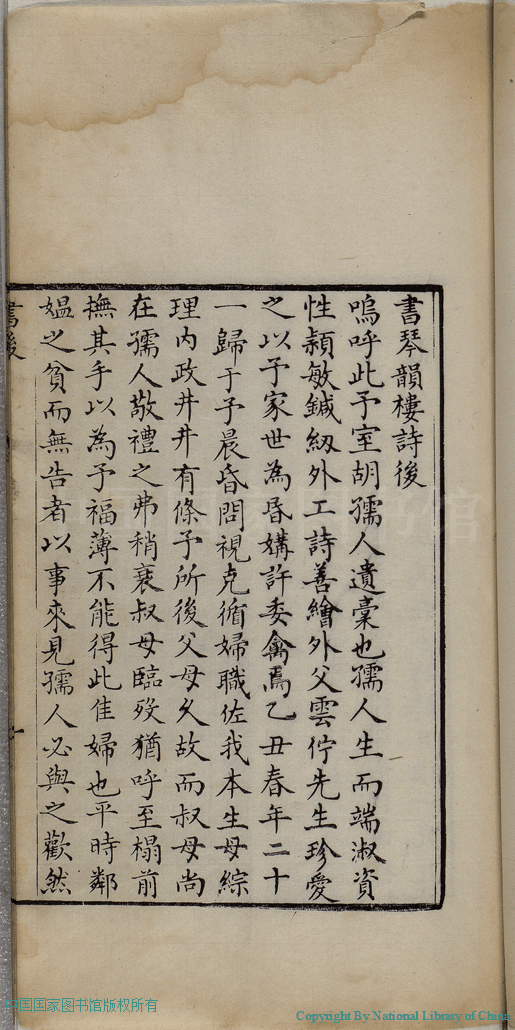 書琴韻樓詩後
嗚呼此予室胡孺人遺稾也孺人生而端淑資
性穎敏鍼紉外工詩善繪外父雲佇先生珍愛
之以予家世為昏媾許委禽焉乙丑春年二十
一歸于予晨昏問視克循婦職佐我本生母綜
理内政井井有條予所後父母久故而叔母尚
在孺人敬禮之弗稍衰叔母臨歿猶呼至榻前
撫其手以為予福薄不能得此佳婦也平時鄰
媪之貧而無告者以事來見孺人必與之歡然
書後
一
中国国家图书馆版权所有
Copyright By National Library of China